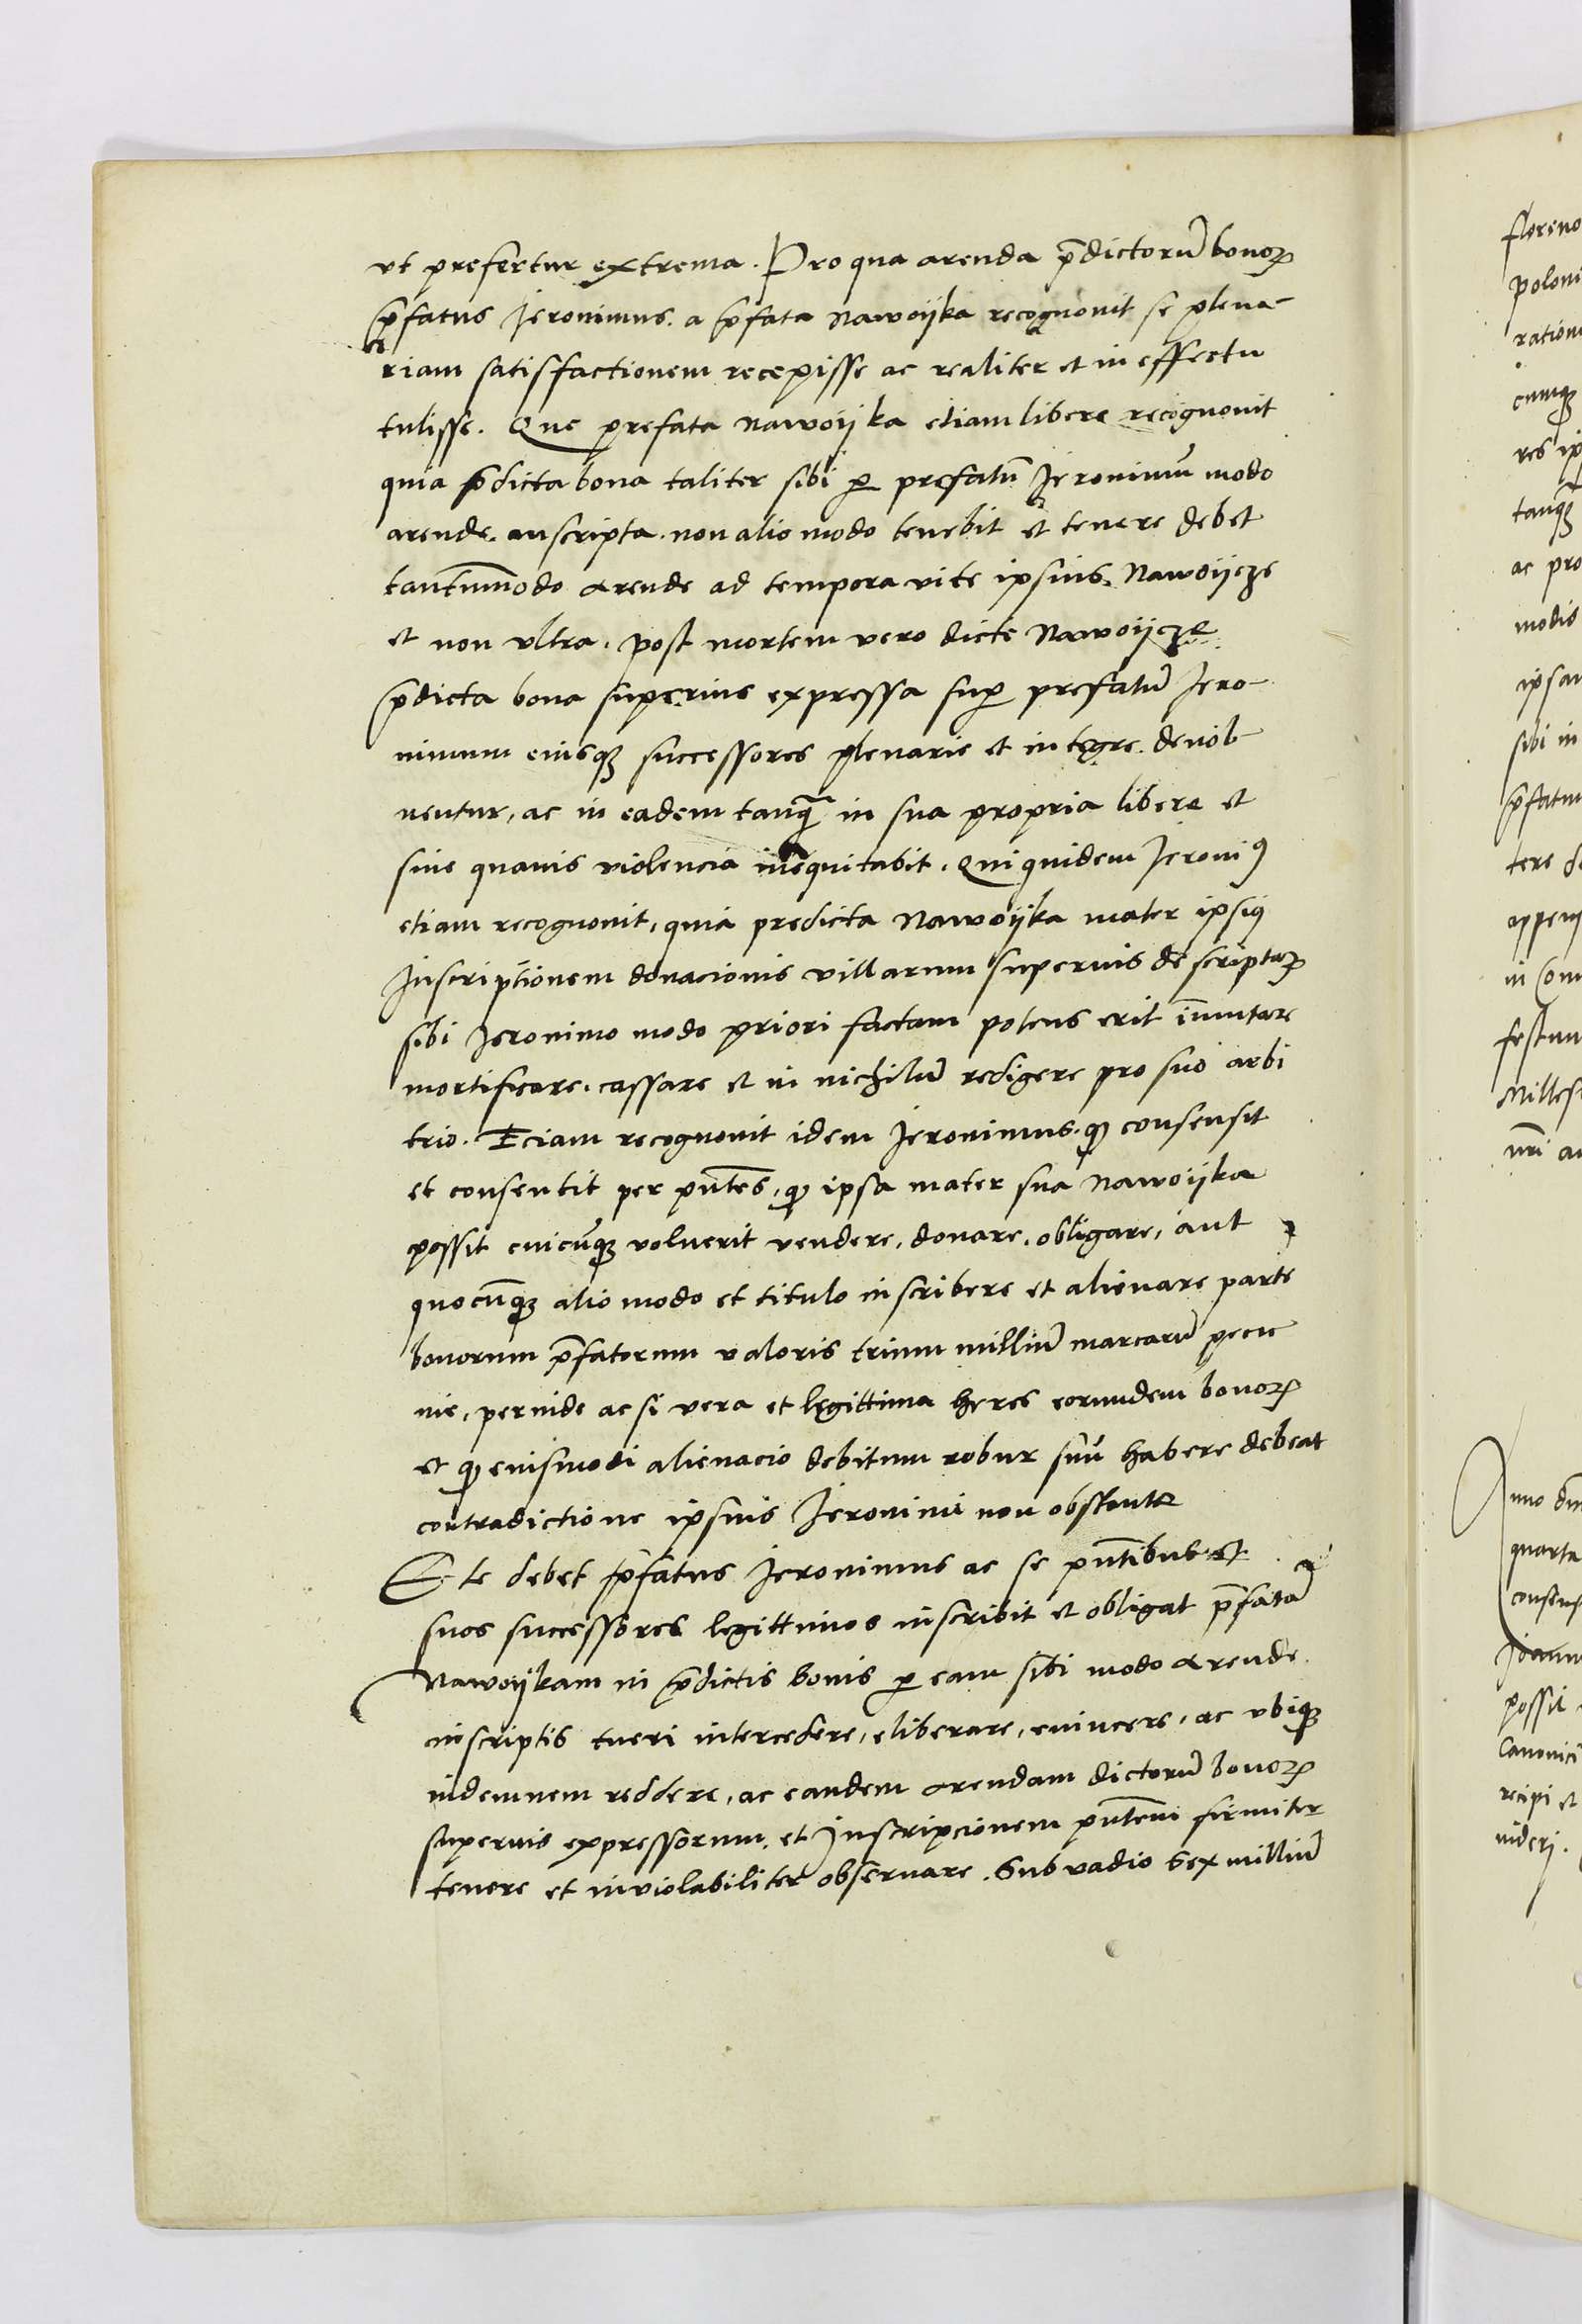 vt prefertur extrema. Pro qua arenda p̄dictorū bonoꝝ
p̄fatus Jeronimus. a p̄fata Nawoijka recognouit se plena-
riam satisfactionem recepisse ac realiter et in effectu
tulisse. Que prefata Nawoijka etiam libere recognouit
quia p̄dicta bona taliter sibi ꝑ prefatū Jeronimū modo
arende. inscripta. non alio modo tenebit et tenere debet
tantum̄modo arende ad tempora vite ipsius Nawoijcze
et non vltra. post mortem vero dicte Nawoijcze
p̄dicta bona superius expressa suꝑ prefatū Jero-
nimum eiusqꝫ successores plenarie et integre. deuol-
uentur, ac in eadem tanqꝫ̄ in sua propria libere et
sine quauis violencia inequitabit. Qui quidem Jeroniꝯ
etiam recognouit, quia predicta Nawoijka mater ipsiꝯ
Inscriptionem donacionis villarum superius descriptaꝝ
sibi Jeronimo modo priori factam potens erit īmutare
mortificare. cassare et in nichilū redigere pro suo arbi
trio. Eciam recognouit idem Jeronimus. qꝫ consensit
et consentit per pn̄tes, qꝫ ipsa mater sua Nawoijka
possit cuicūqꝫ voluerit vendere, donare, obligare, aut
quocūqꝫ alio modo et titulo inscribere et alienare parte
bonorum p̄fatorum valoris trium milliū marcarū pecu
nie, perinde ac si vera et legittima heres eorundem bonoꝝ
et qꝫ eiusmodi alienacio debitum robur suū habere debeat
contradictione ipsius Jeronimi non obstante
Et te debet p̄fatus Jeronimus ac se pn̄tibus et
suos successores legittimos inscribit et obligat p̄fatā
Nawoijkam in p̄dictis bonis ꝑ eam sibi modo arende.
inscriptis tueri intercedere, eliberare, euincere, ac vbiqꝫ
indemnem reddere, ac eandem arendam dictorū bonoꝝ
superius expressorum, et Inscripcionem pn̄tem firmiter
tenere et inviolabiliter obseruare. Sub vadio sex milliū